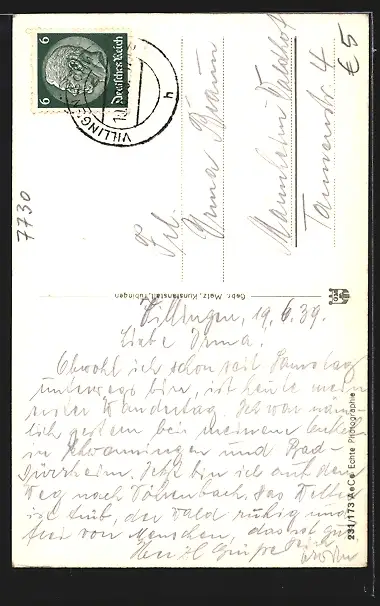 6
Deutsches Reich
6
VILLINGEN
h
€ 5
7730
Frl.
Irma Braun
Mannheim-Waldhof
Tannenstr. 4
Gebr. Metz, Kunstanstalt, Tübingen
231/173 AeCo. Echte Photographie
Villingen, 19.6.39.
Liebe Irma.
Obwohl ich schon seit Samstag
unterwegs bin, ist heute mein
erster Wandertag. Ich war näm-
lich gestern bei meinem
in Schwenningen und Bad-
Dürrheim. Jetzt bin ich auf dem
Weg nach Vöhrenbach. Das Wetter
ist trüb, der Wald ruhig und
frei von Menschen, das ist gut.
Herzl. Grüße